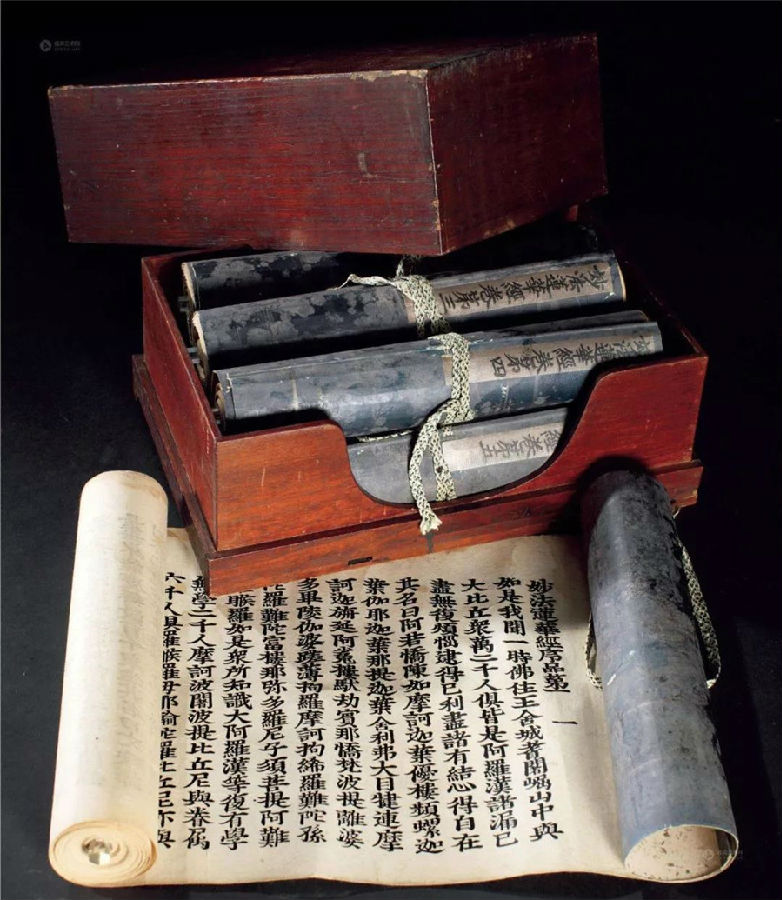 妙法蓮華經卷第三
妙法蓮華經卷第四
經卷第五
妙法蓮華經序品第一
如是我聞一時佛住王舍城耆闍崛山中與
大比丘衆萬二千人俱皆是阿羅漢諸漏已
盡無復煩惱逮得己利盡諸有結心得自在
其名曰阿若憍陳如摩訶迦葉優樓頻螺迦
葉伽耶迦葉那提迦葉舍利弗大目犍連摩
訶迦旃延阿㝹樓馱劫賓那憍梵波提離婆
多畢陵伽婆蹉薄拘羅摩訶拘絺羅難陀孫
陀羅難陀富樓那弥多羅尼子須菩提阿難
羅睺羅如是衆所知識大阿羅漢等復有學
無學二千人摩訶波闍波提比丘尼與眷属
六千人俱羅睺羅母耶輸陀羅比丘尼亦與